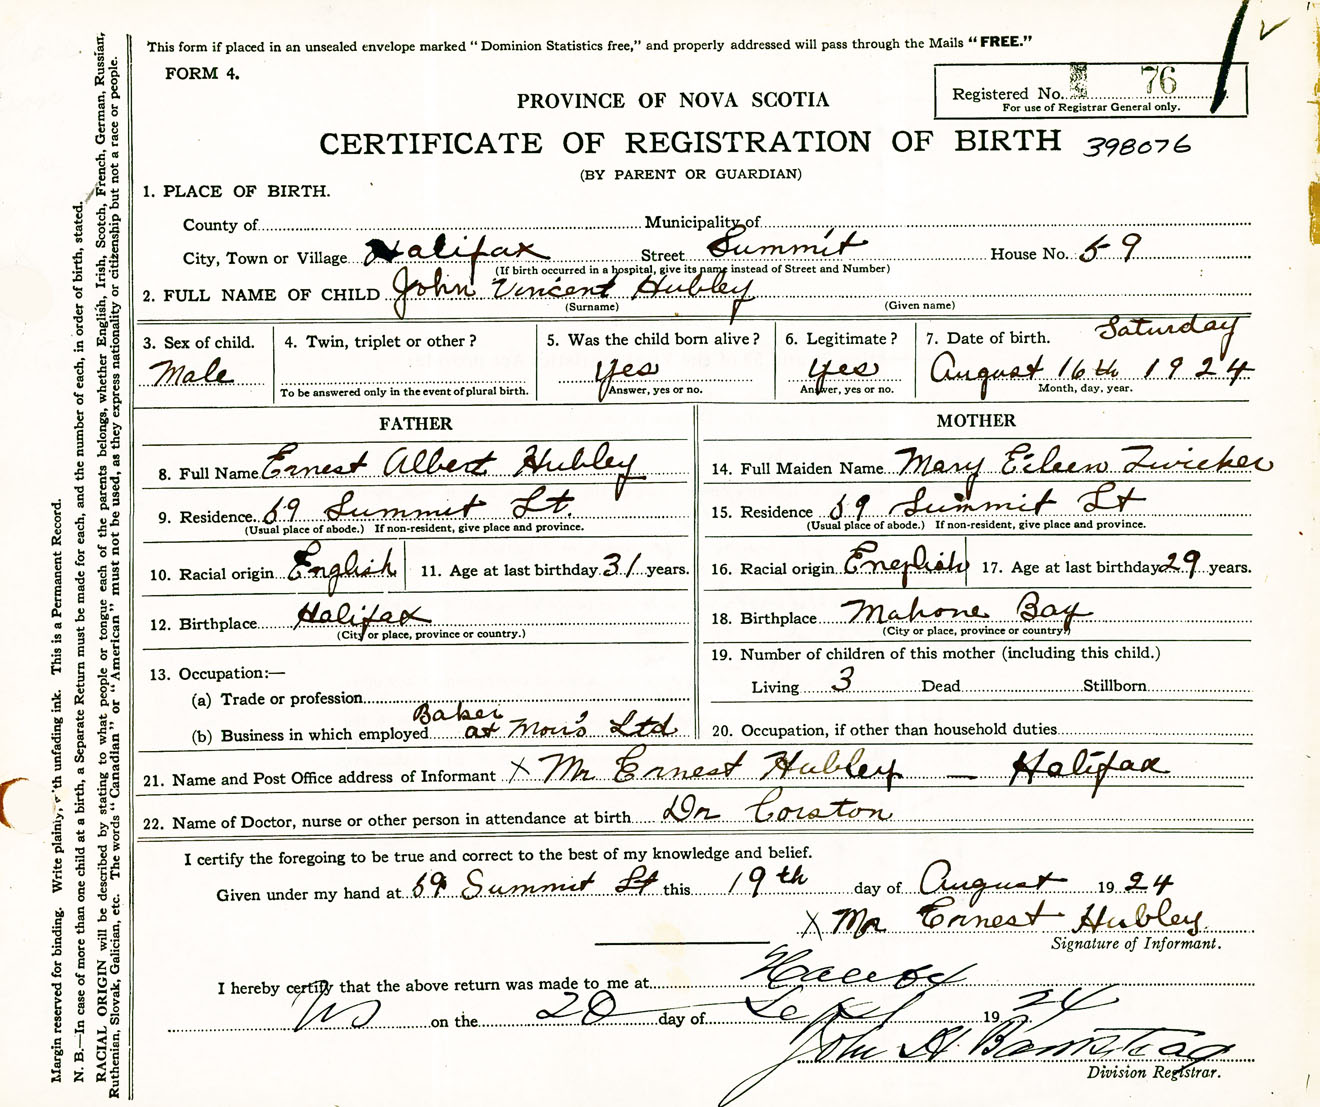 This form if placed in an unsealed envelope marked "Dominion Statistics free," and properly addressed will pass through the Mails "FREE."
FORM 4.
Registered No. 76
For use of Registrar General only.
PROVINCE OF NOVA SCOTIA
CERTIFICATE OF REGISTRATION OF BIRTH 398076
(BY PARENT OR GUARDIAN)
1. PLACE OF BIRTH.
County of Municipality of
City, Town or Village Halifax Street Summit House No. 59
(If birth occurred in a hospital, give its name instead of Street and Number)
2. FULL NAME OF CHILD John Vincent Hubley
(Surname) (Given name)
3. Sex of child. Male
4. Twin, triplet or other?
To be answered only in the event of plural birth.
5. Was the child born alive? Yes
Answer, yes or no.
6. Legitimate? Yes
Answer, yes or no.
7. Date of birth. Saturday
August 16th 1924
Month, day, year.
FATHER
8. Full Name Ernest Albert Hubley
9. Residence 59 Summit St.
(Usual place of abode.) If non-resident, give place and province.
10. Racial origin English 11. Age at last birthday 31 years.
12. Birthplace Halifax
(City or place, province or country.)
13. Occupation:—
(a) Trade or profession
Baker
(b) Business in which employed at Moir's Ltd
MOTHER
14. Full Maiden Name Mary Eileen Zwicker
15. Residence 59 Summit St
(Usual place of abode.) If non-resident, give place and province.
16. Racial origin English 17. Age at last birthday 29 years.
18. Birthplace Mahone Bay
(City or place, province or country)
19. Number of children of this mother (including this child.)
Living 3 Dead Stillborn
20. Occupation, if other than household duties
21. Name and Post Office address of Informant X Mr Ernest Hubley — Halifax
22. Name of Doctor, nurse or other person in attendance at birth Dr Corston
I certify the foregoing to be true and correct to the best of my knowledge and belief.
Given under my hand at 59 Summit St this 19th day of August 1924
X Mr Ernest Hubley.
Signature of Informant.
I hereby certify that the above return was made to me at Halifax
NS on the 20 day of Sept 1924
John A
Division Registrar.
Margin reserved for binding. Write plainly, with unfading ink. This is a Permanent Record.
N. B.—In case of more than one child at a birth, a Separate Return must be made for each, and the number of each, in order of birth, stated.
RACIAL ORIGIN will be described by stating to what people or tongue each of the parents belongs, whether English, Irish, Scotch, French, German, Russian,
Ruthenian, Slovak, Galician, etc. The words "Canadian" or "American" must not be used, as they express nationality or citizenship but not a race or people.